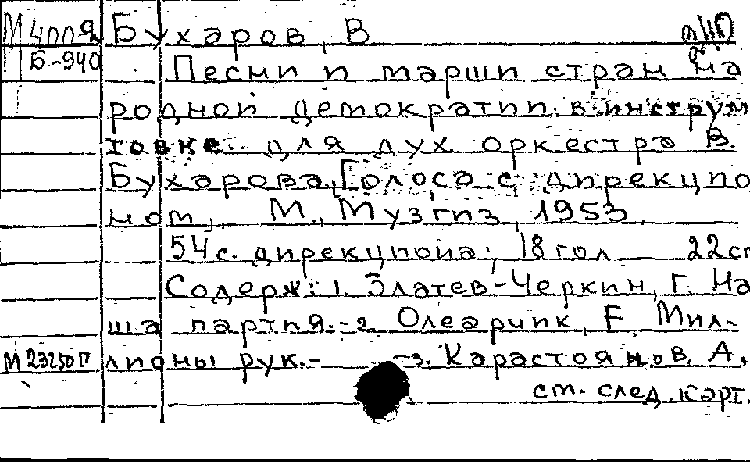 М 4009 Бухаров, В
Б-940 Песни и марши стран на
родной демократии в инструм
товке для дух оркестра В.
Бухарова, Голоса с дирекцио
ном, М., Музгиз, 1953.
54 с. дирекциона; 18 гол 22 см
Содерж: 1. Златев-Черкин, Г. На
ша партия.-2. Олеарчик, Е. Мил-
М 23250П лионы рук.- -3. Карастоянов, А.
см. след. карт.